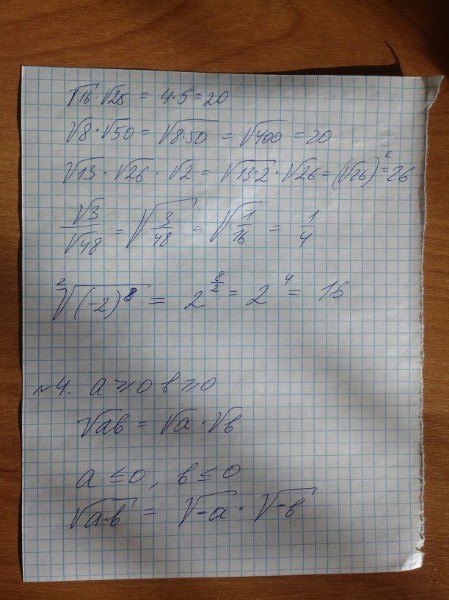 √16·√25 = 4·5 = 20
√8·√50 = √8·50 = √400 = 20
√13·√26·√2 = √13·2·√26 = (√26)² = 26
√3/√48 = √3/48 = √1/16 = 1/4
²√(-2)⁸ = 2^(8/2) = 2⁴ = 16
№4. a ≥ 0 b ≥ 0
√ab = √a·√b
a ≤ 0, b ≤ 0
√a·b = √-a·√-b